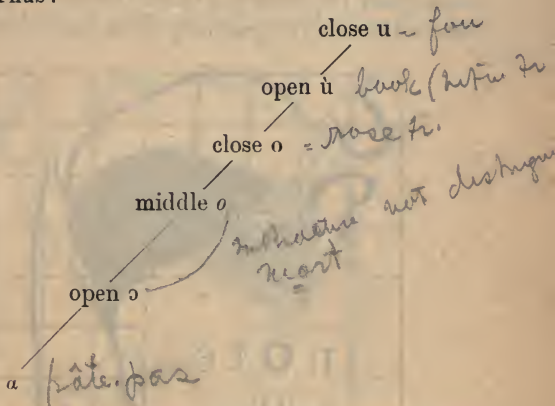 Thus:
close u - fou
open ù book (
close o = rose fr.
middle o
in Practice not
mort
open ɔ
ɑ pâte. pas